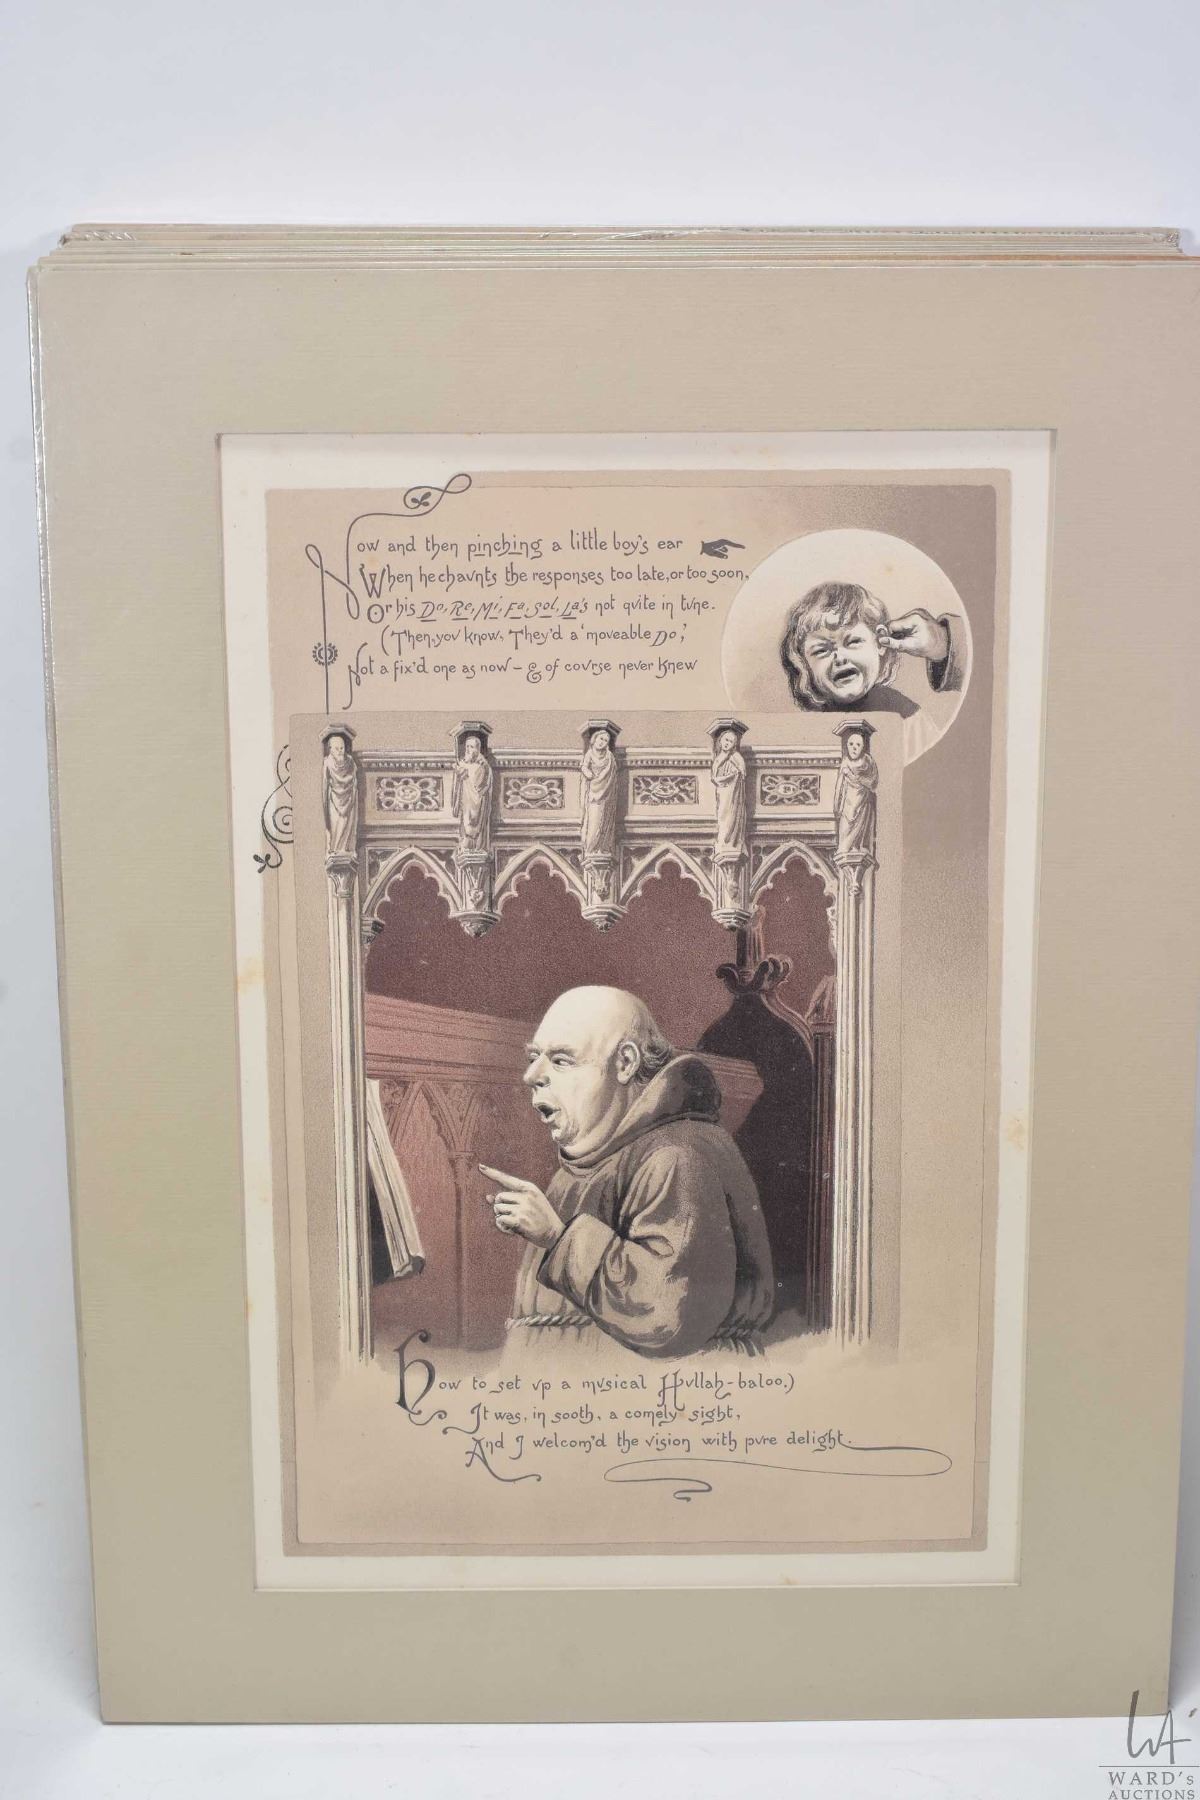 Now and then pinching a little boy's ear
When he chavnts the responses too late, or too soon,
Or his Do, Re, Mi, Fa, Sol, La's not qvite in tvne.
(Then, yov know, They'd a 'moveable Do,'
Not a fix'd one as now – & of covrse never knew
How to set vp a mvsical Hvllah-baloo.)
It was, in sooth, a comely sight,
And I welcom'd the vision with pvre delight.
WA
WARD's
AUCTIONS